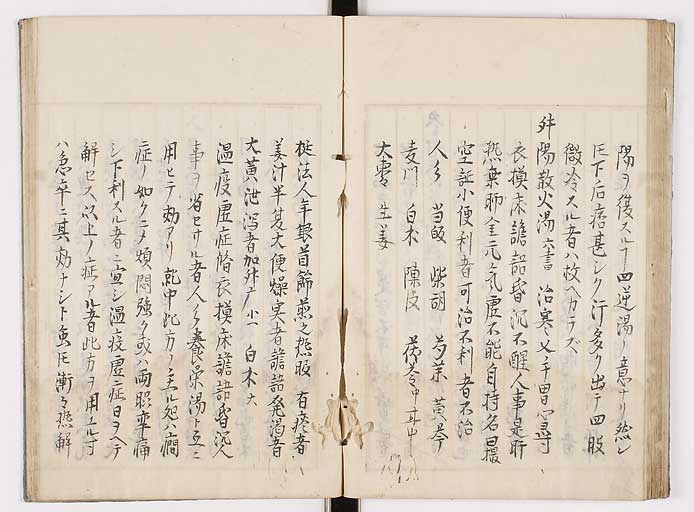 陽ヲ復スルヿ四逆湯ノ意ナリ然シ
𪜈下后痞甚シク汗多ク出テ四肢
微冷スル者ハ救ヘカラズ
升陽散火湯 六書 治寒
衣摸床譫語昏沉不醒人事是肝
熱乗肺金元気虚不能自持名曰撮
空証小便利者可治不利者不治
人参 当皈 柴胡 芍薬 黄芩
麦門 白朮 陳皮 茯苓中 耳中
大棗 生姜
槌法人年銀首飾煎之熱服 有痰者
姜汁半夏大便燥実者譫語発渇者
大黄泄瀉者加升麻小一 白朮大
温疫虚症循衣摸床譫語昏沉人
事ヲ省セサル者人参養栄湯ト互ニ
用ヒテ効アリ就中此方ヲ主ル処ハ癇
症ノ如クニメ煩悶強ク或ハ両脇牽痛
シ下利スル者ニ宜シ温疫虚症日ヲヘテ
解セス以上ノ症アル者此方ヲ用ユル寸
ハ急卒ニ其効ナシト虽𪜈漸々熱解